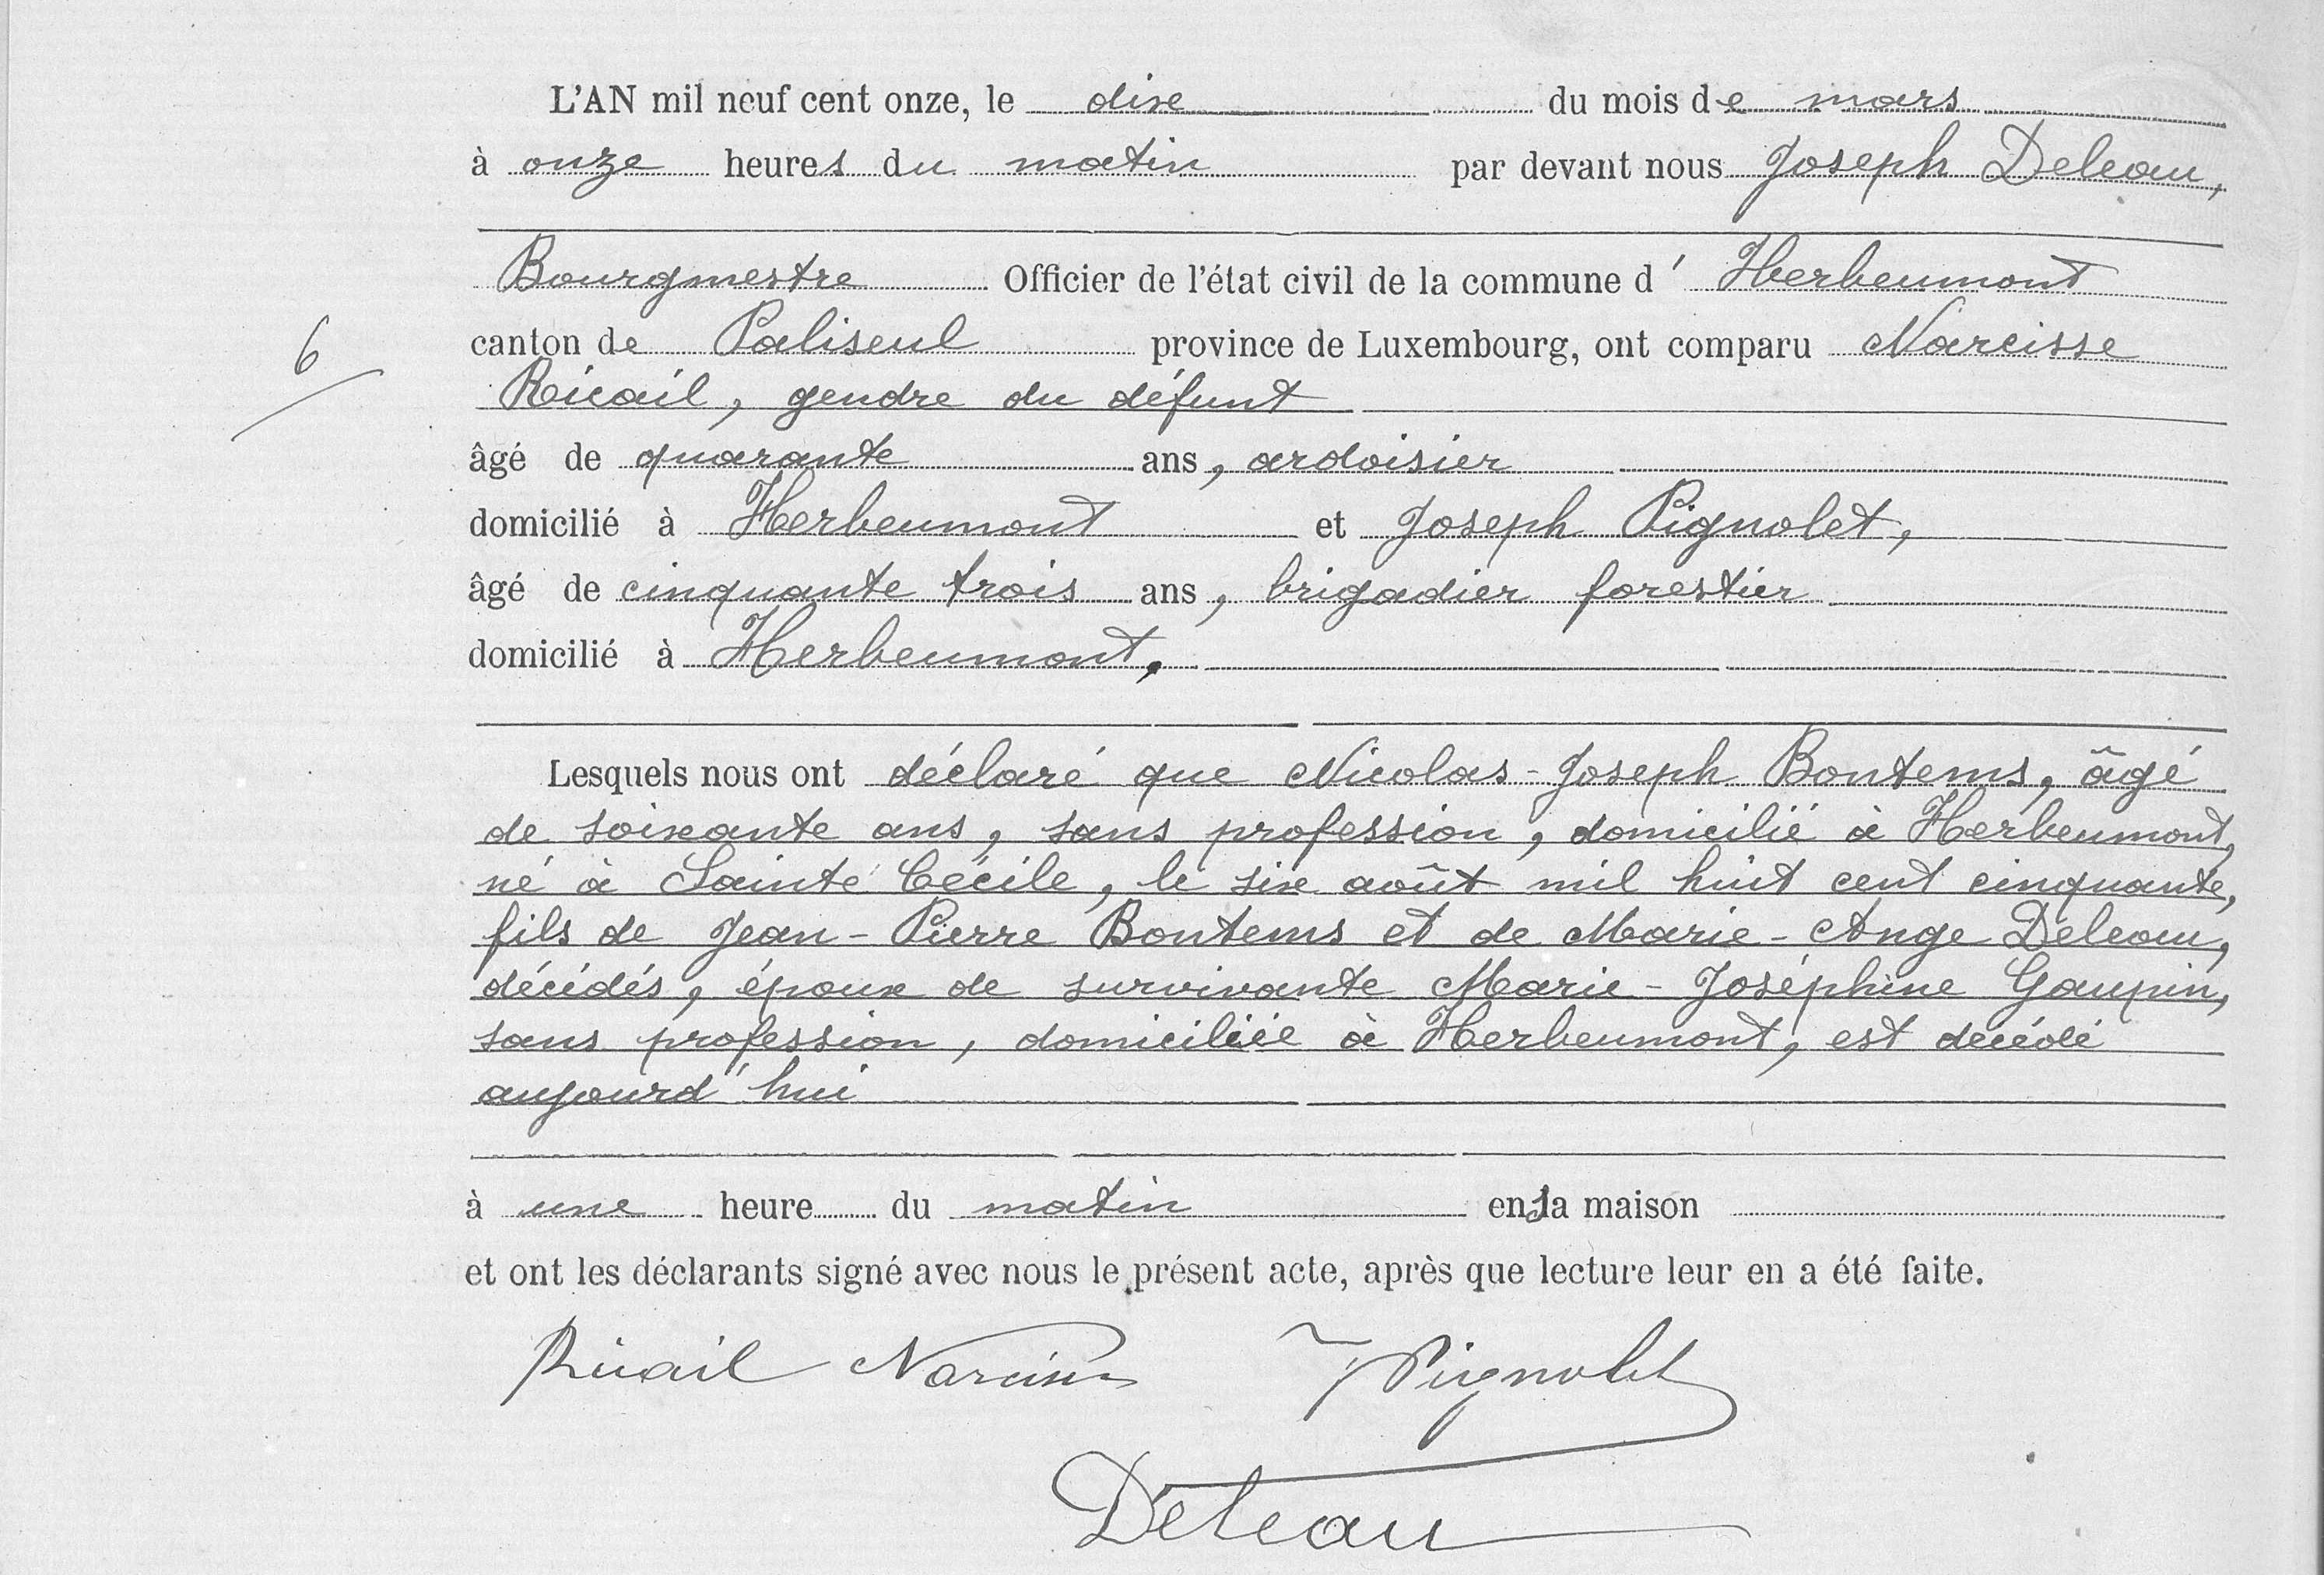 L'AN mil neuf cent onze, le dix du mois de mars
à onze heures du matin par devant nous Joseph Deleau,
Bourgmestre Officier de l'état civil de la commune d' Herbeumont
6
canton de Paliseul province de Luxembourg, ont comparu Narcisse
Ricail, gendre du défunt
âgé de quarante ans, ardoisier
domicilié à Herbeumont et Joseph Pignolet,
âgé de cinquante trois ans, brigadier forestier
domicilié à Herbeumont,
Lesquels nous ont déclaré que Nicolas-Joseph Bontems, âgé
de soixante ans, sans profession, domicilié à Herbeumont,
né à Sainte Cécile, le six août mil huit cent cinquante,
fils de Jean-Pierre Bontems et de Marie-Ange Deleau,
décédés, époux de survivante Marie-Joséphine Gaupin,
sans profession, domiciliée à Herbeumont, est décédé
aujourd'hui
à une heure du matin en sa maison
et ont les déclarants signé avec nous le présent acte, après que lecture leur en a été faite.
Ricail Narcisse J Pignolet
Deleau